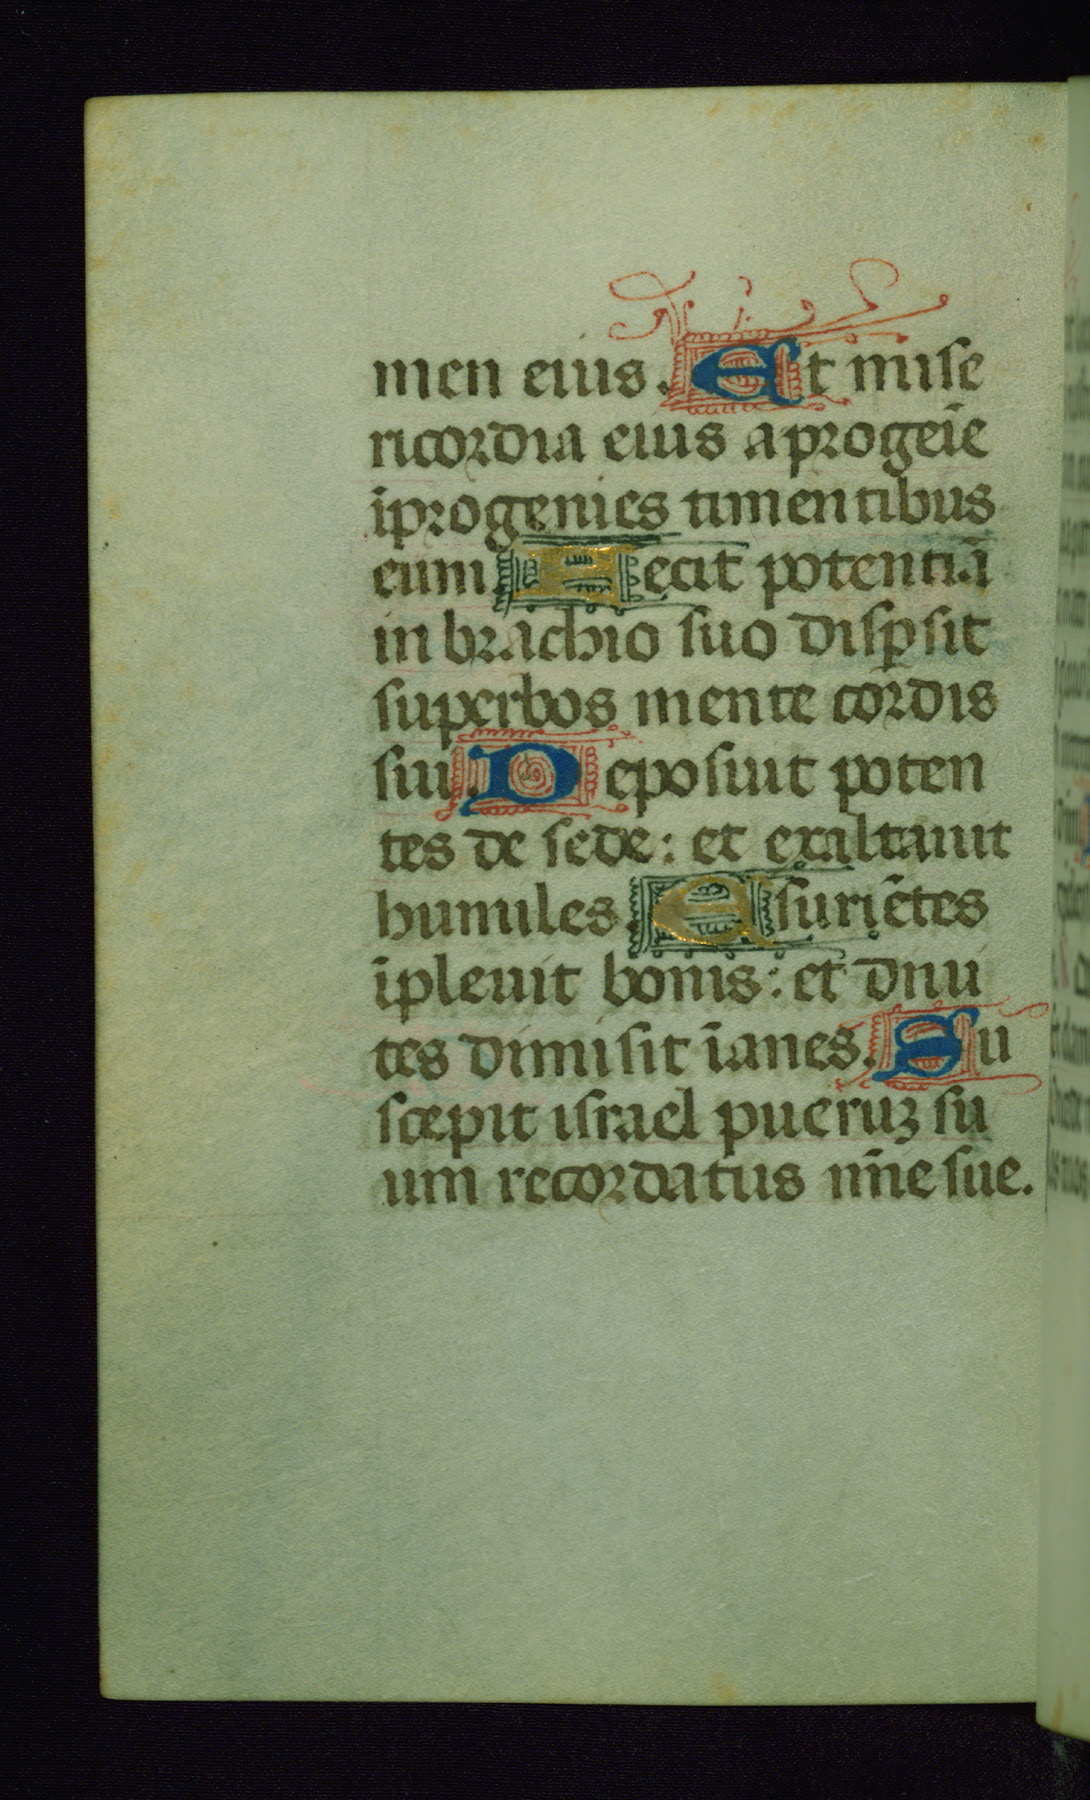 men eius. Et mise
ricordia eius a progeīe
īprogenies timentibus
eum. Fecit potentiā
in brachio suo dispsit
superbos mente cordis
sui. Deposuit poten
tes de sede: et exaltauit
humiles. Esuriētes
īpleuit bonis: et diui
tes dimisit īanes. Su
scepit israel pueruꝫ su
um recordatus mīe sue.